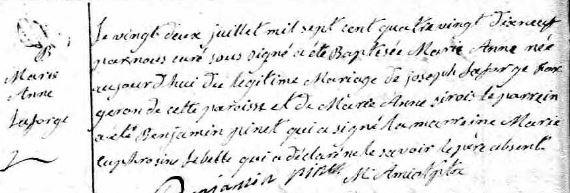 B
Marie
Anne
Laforge
Le vingt deux juillet mil sept cent quatre vingt dixneuf
par nous curé sous signé a été Baptisée Marie Anne née
aujourd'hui du légitime Mariage de joseph Laforge
de cette paroisse et de Marie Anne sirois le parrein
a été Benjamin pinet qui a signé la marreine Marie
Euphrosine Lebelle qui a déclaré ne le savoir le père absent
Benjamin pinet M. Amiot ptre